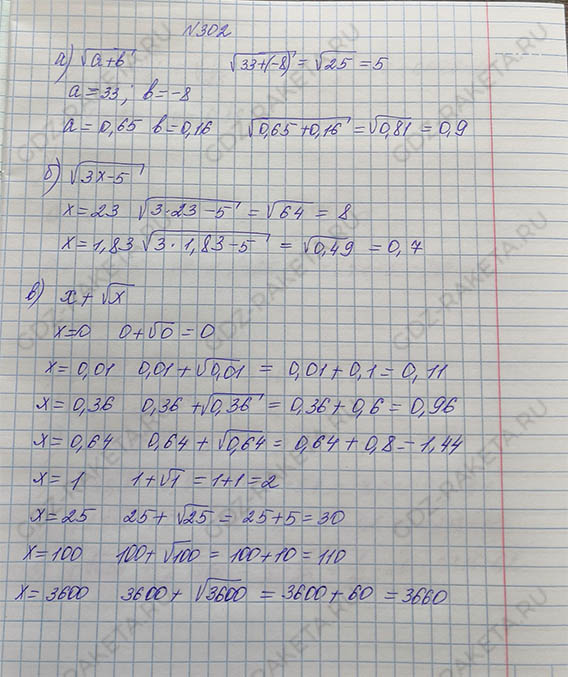 №302
а) √(a+b) √(33+(-8)) = √25 = 5
a = 33; b = -8
a = 0,65 b = 0,16 √(0,65+0,16) = √0,81 = 0,9
б) √(3x-5)
x = 23 √(3·23-5) = √64 = 8
x = 1,83 √(3·1,83-5) = √0,49 = 0,7
в) x + √x
x=0 0+√0 = 0
x = 0,01 0,01 + √0,01 = 0,01 + 0,1 = 0,11
x = 0,36 0,36 + √0,36 = 0,36 + 0,6 = 0,96
x = 0,64 0,64 + √0,64 = 0,64 + 0,8 = 1,44
x = 1 1+√1 = 1+1 = 2
x = 25 25 + √25 = 25+5 = 30
x = 100 100 + √100 = 100+10 = 110
x = 3600 3600 + √3600 = 3600 + 60 = 3660
GDZ-RAKETA.RU